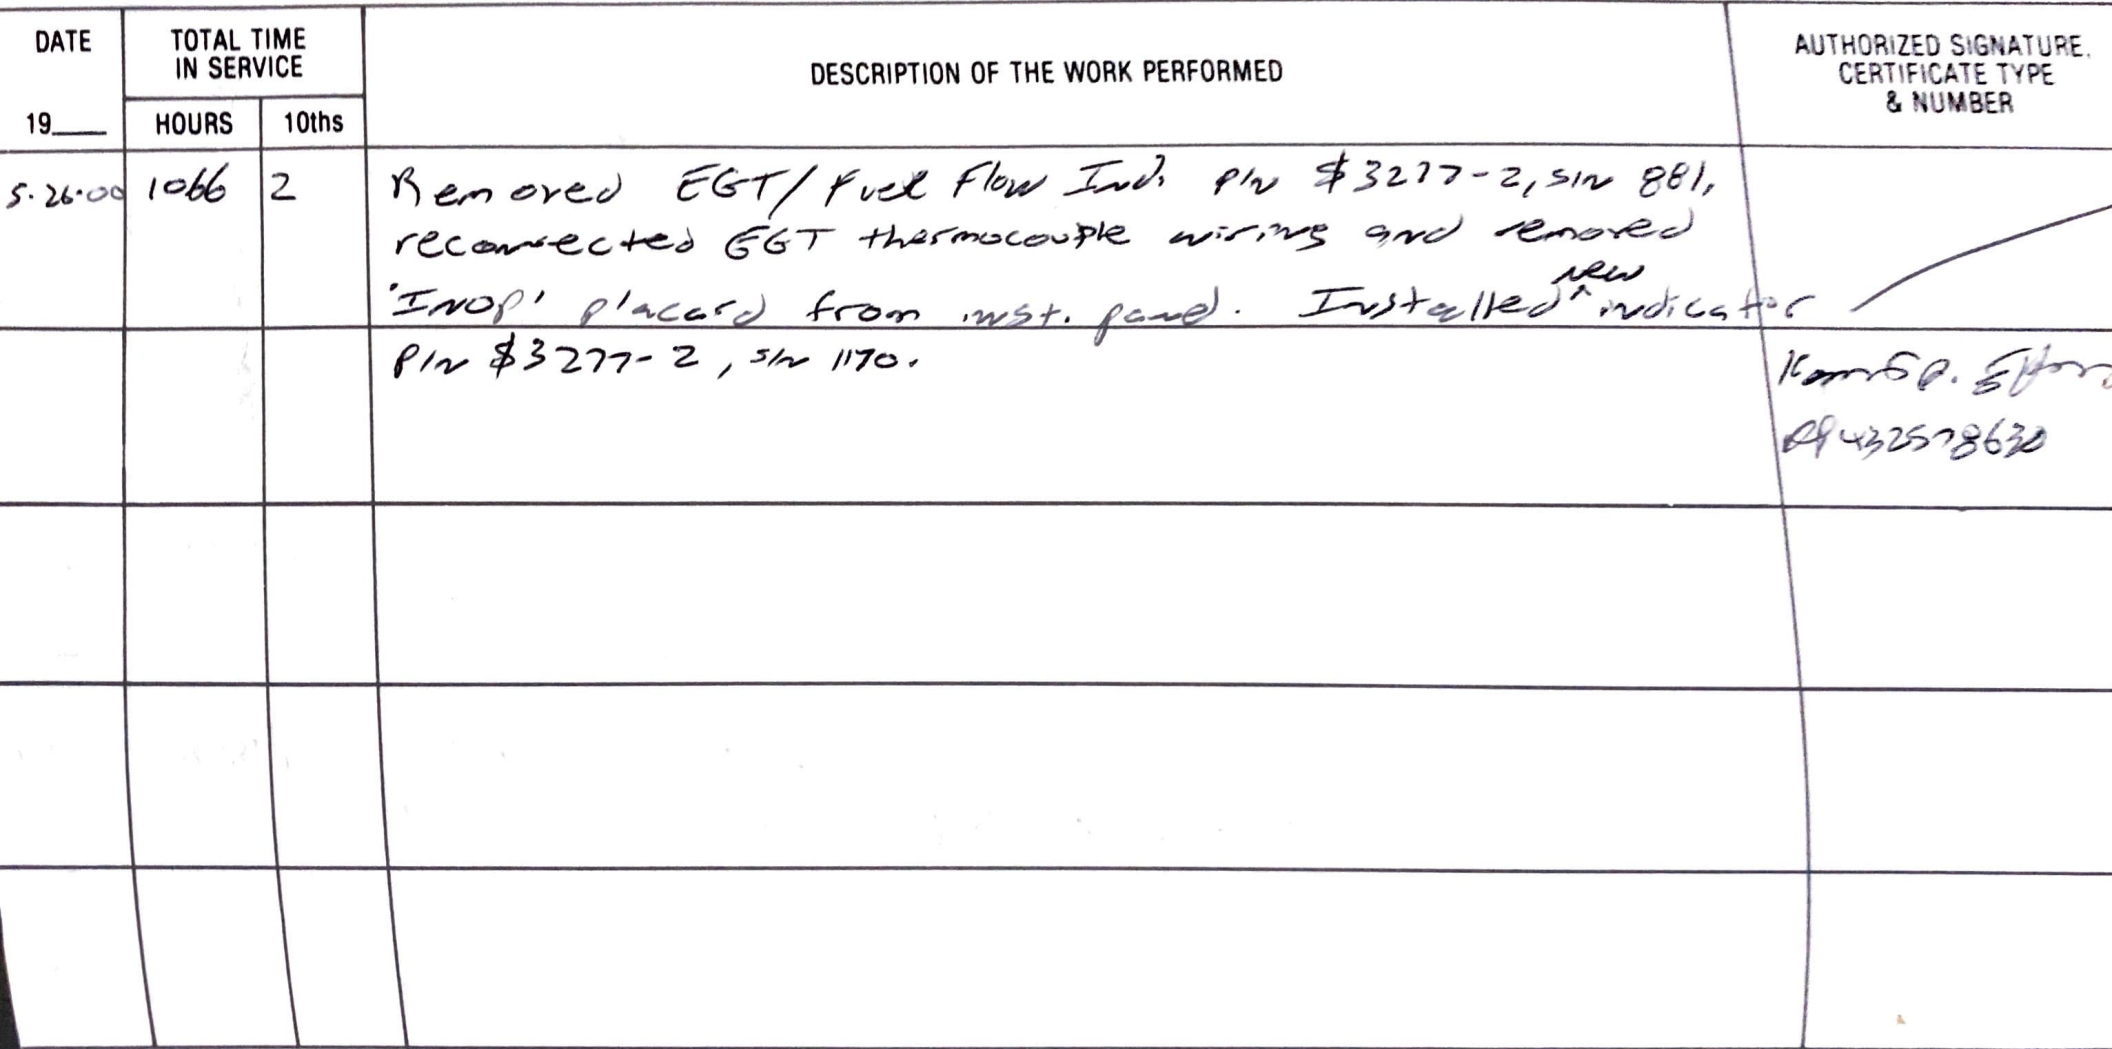 DATE
TOTAL TIME
IN SERVICE
DESCRIPTION OF THE WORK PERFORMED
AUTHORIZED SIGNATURE,
CERTIFICATE TYPE
& NUMBER
19___ HOURS 10ths
5.26.00 1066 2 Removed EGT/Fuel Flow Ind. P/N $3277-2, S/N 881,
reconnected EGT thermocouple wiring and removed
'INOP' placard from inst. panel. Installed ^new indicator
P/N $3277-2, S/N 1170.
432578630